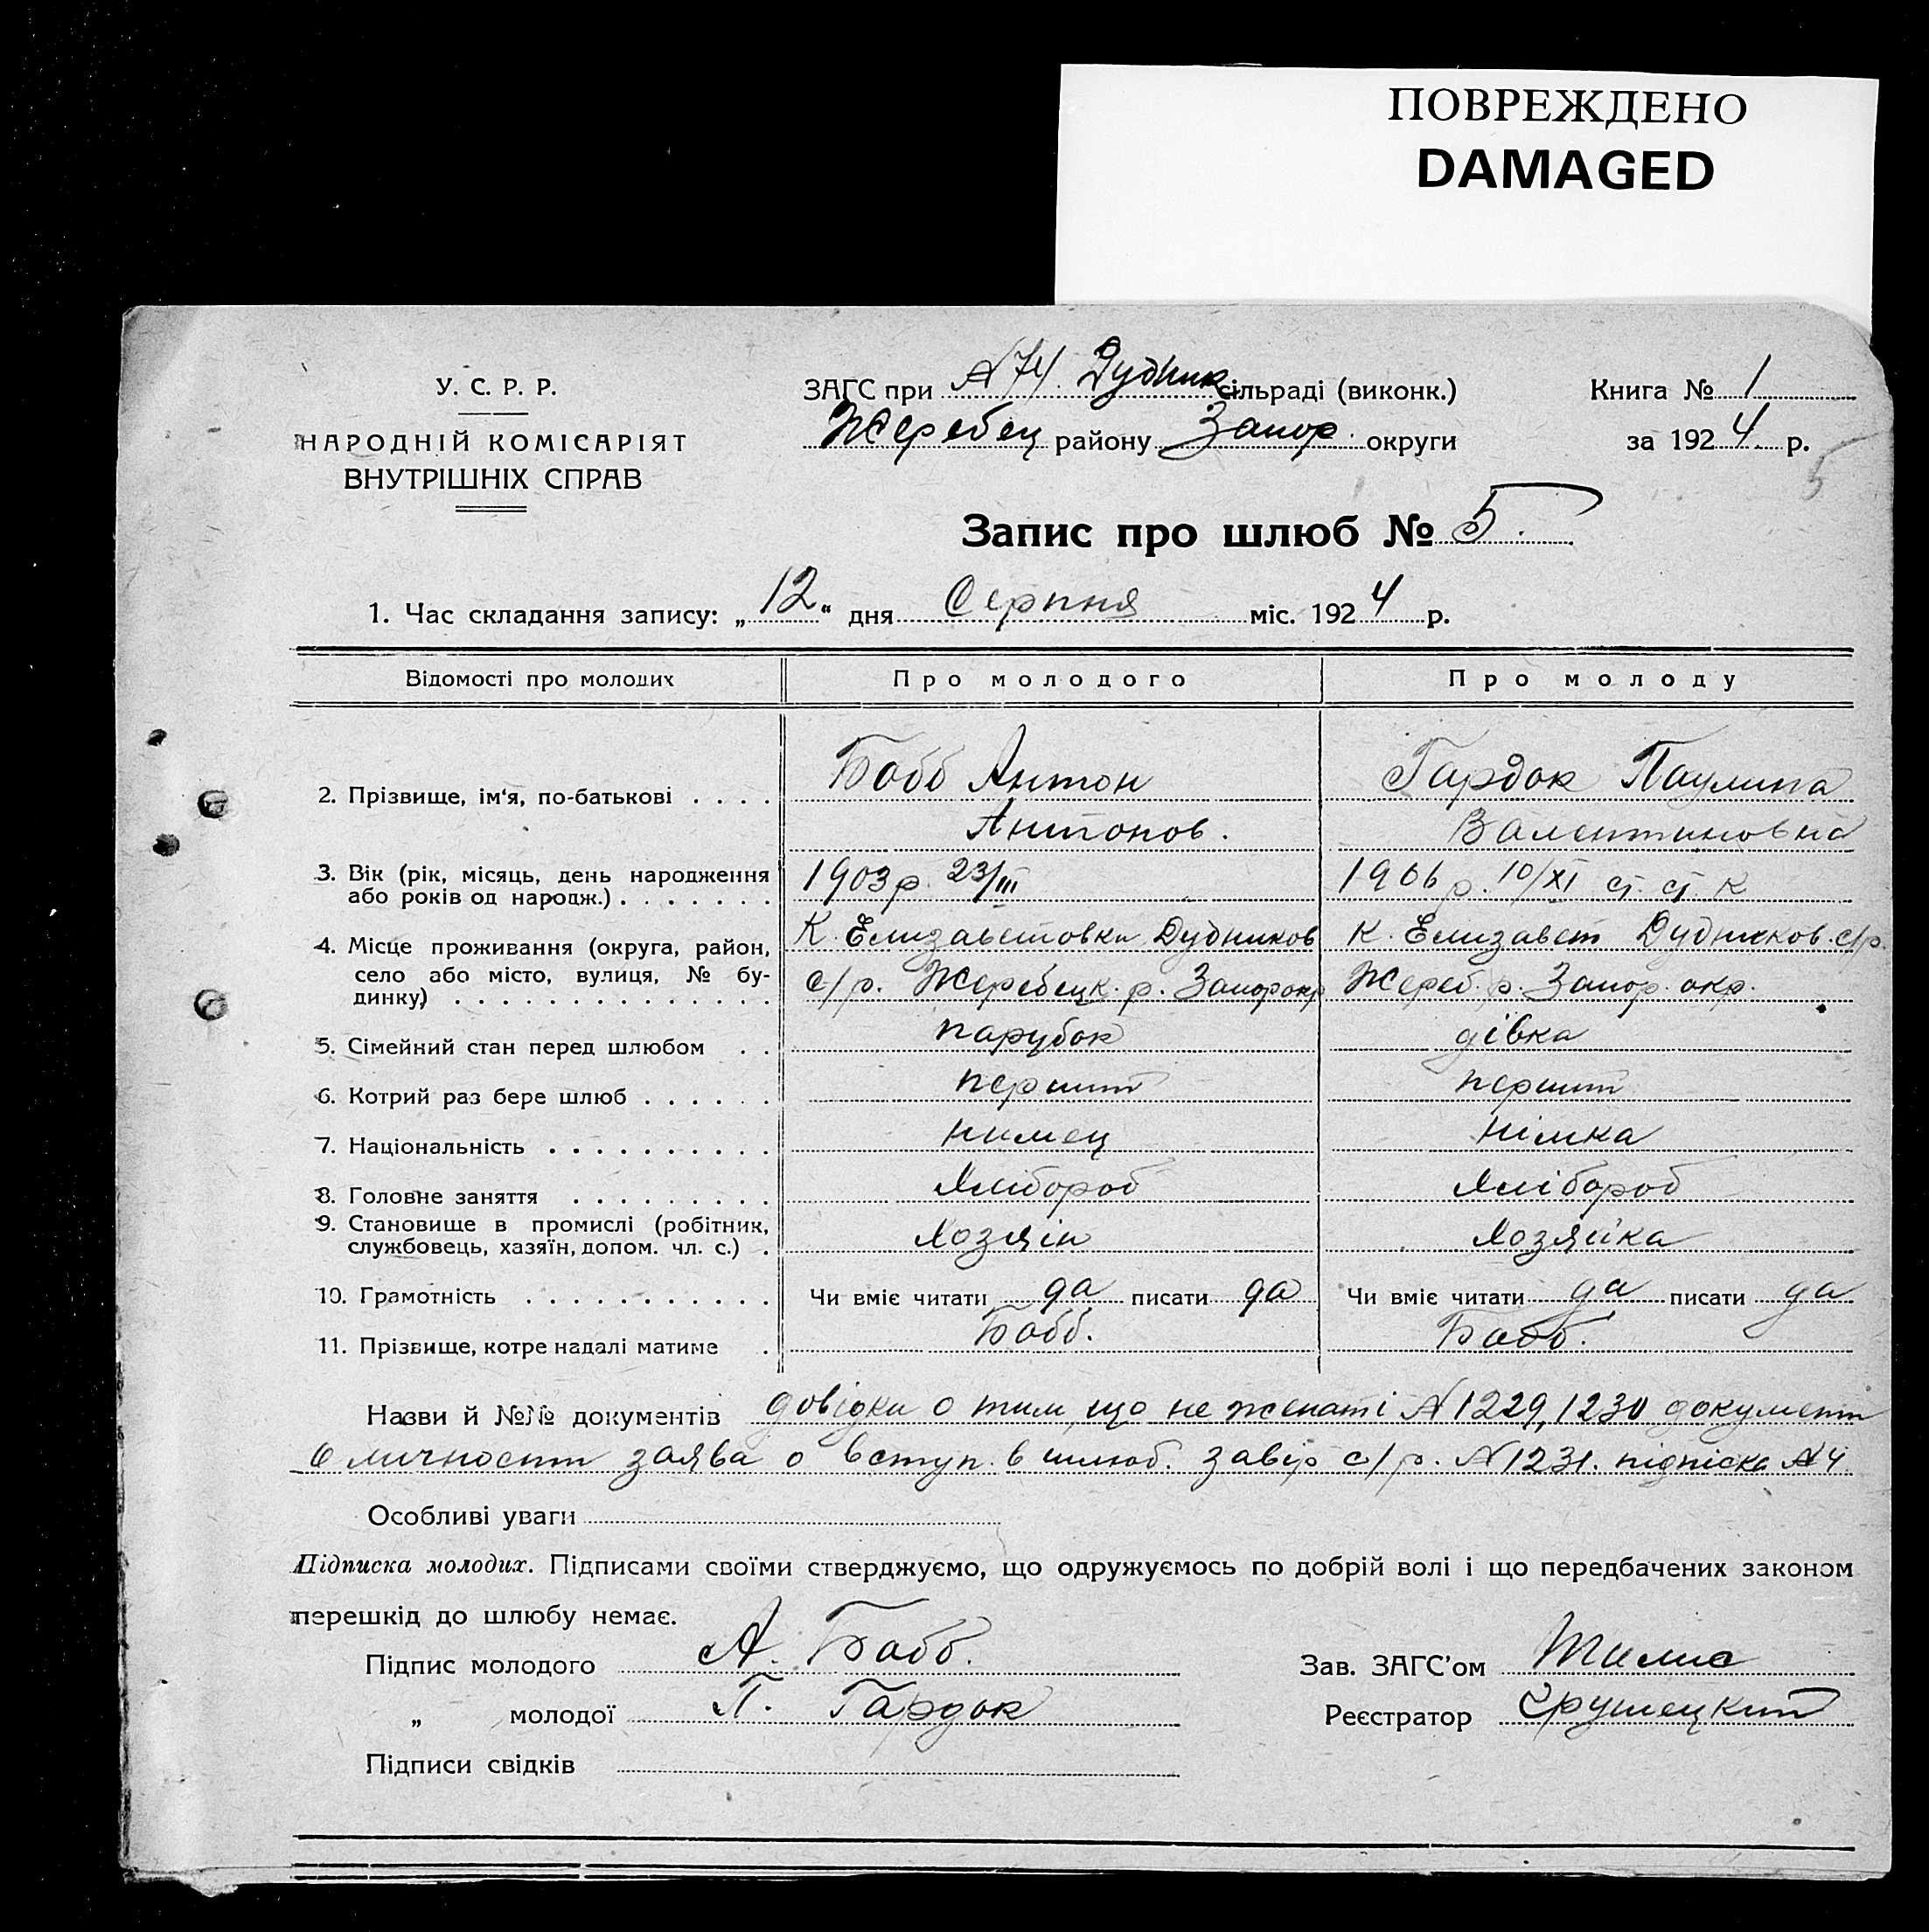 ПОВРЕЖДЕНО
DAMAGED
У. С. Р. Р.
НАРОДНІЙ КОМІСАРІЯТ
ВНУТРІШНІХ СПРАВ
ЗАГС при №74 Дудник сільраді (виконк.)
Жеребец району Запор. округи
Книга № 1
за 1924 р.
5
Запис про шлюб № 5.
1. Час складання запису: „12“ дня Серпня міс. 1924 р.
Відомості про молодих Про молодого Про молоду
2. Прізвище, ім'я, по-батькові . . . . Бобб Антон Гардок Паулина
Антонов. Валентиновна
3. Вік (рік, місяць, день народження або років од народж.) . . . . . . . 1903 р. 23/III 1906 р. 10/XI ст. ст.
4. Місце проживання (округа, район, село або місто, вулиця, № будинку) . . . . . . . . . . . . . . . К. Елизаветовки Дудников К. Елизавет Дудников. с/р.
с/р. Жеребецк. р. Запорокр Жереб. р. Запор. окр.
5. Сімейний стан перед шлюбом . . парубок дівка
6. Котрий раз бере шлюб . . . . . . перший перший
7. Національність . . . . . . . . . . нимец німка
8. Головне заняття . . . . . . . . . Хлібороб Хлібороб
9. Становище в промислі (робітник, службовець, хазяїн, допом. чл. с.) . Хозяін Хозяйка
10. Грамотність . . . . . . . . . . . Чи вміє читати да писати да Чи вміє читати да писати да
11. Прізвище, котре надалі матиме . Бобб. Бобб.
Назви й №№ документів довідки о тим, що не женаті №1229, 1230 документи
о личности заява о вступ. в шлюб. завір с/р. №1231. підпіска №4
Особливі уваги
Підписка молодих. Підписами своїми стверджуємо, що одружуємось по добрій волі і що передбачених законом
перешкід до шлюбу немає.
Підпис молодого А. Бобб. Зав. ЗАГС'ом
„ молодої П. Гардок Реєстратор
Підписи свідків